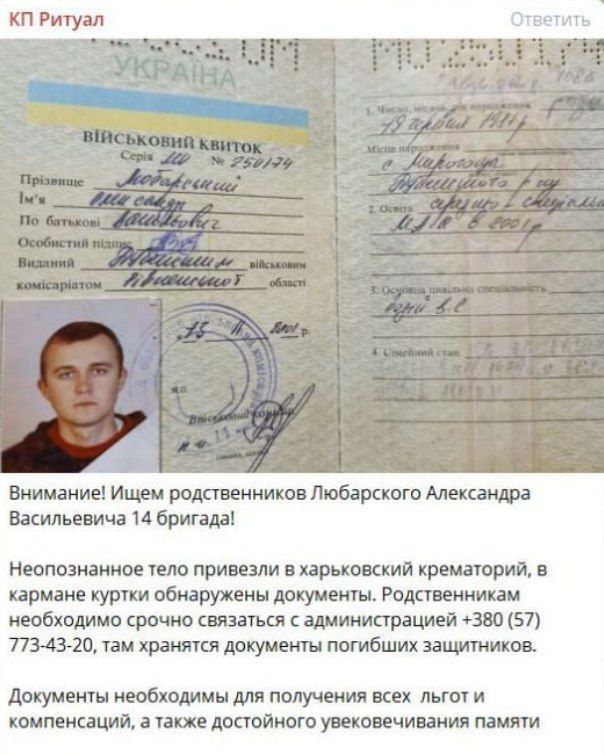 КП Ритуал
Ответить
УКРАЇНА
ВІЙСЬКОВИЙ КВИТОК
Серія МО № 250174
Прізвище Любарський
Ім'я Олександр
По батькові Васильович
Особистий підпис
Виданий Дубенським військовим
комісаріатом Рівненської області
2001 р.
М.П.
Військовий комісар
1. Число, місяць народження
19 червня
Місце народження
с. Мирогоща
Дубенського р-ну
2. Освіта середньо - спеціальна
в 2001 р
3. Основна цивільна спеціальність
4. Сімейний стан
Внимание! Ищем родственников Любарского Александра
Васильевича 14 бригада!
Неопознанное тело привезли в харьковский крематорий, в
кармане куртки обнаружены документы. Родственникам
необходимо срочно связаться с администрацией +380 (57)
773-43-20, там хранятся документы погибших защитников.
Документы необходимы для получения всех льгот и
компенсаций, а также достойного увековечивания памяти